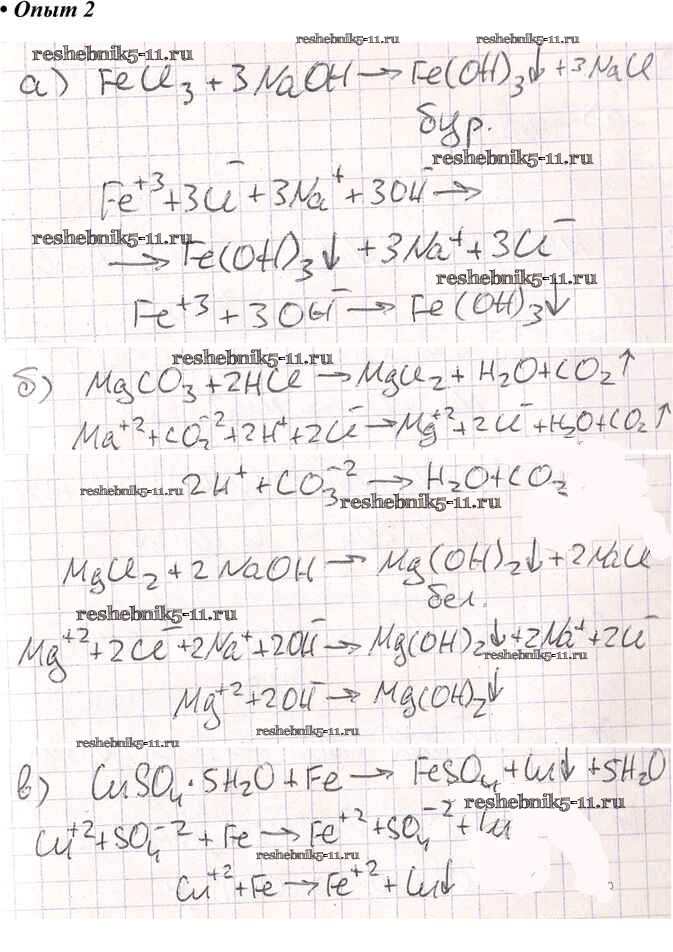 • Опыт 2
reshebnik5-11.ru reshebnik5-11.ru reshebnik5-11.ru
а) FeCl₃ + 3NaOH → Fe(OH)₃↓ + 3NaCl
бур.
reshebnik5-11.ru
Fe⁺³ + 3Cl⁻ + 3Na⁺ + 3OH⁻ →
reshebnik5-11.ru
→ Fe(OH)₃↓ + 3Na⁺ + 3Cl⁻
reshebnik5-11.ru
Fe⁺³ + 3OH⁻ → Fe(OH)₃↓
reshebnik5-11.ru
б) MgCO₃ + 2HCl → MgCl₂ + H₂O + CO₂↑
Ma⁺² + CO₂⁻² + 2H⁺ + 2Cl⁻ → Mg⁺² + 2Cl⁻ + H₂O + CO₂↑
2H⁺ + CO₃⁻² → H₂O + CO₂
reshebnik5-11.ru reshebnik5-11.ru
MgCl₂ + 2NaOH → Mg(OH)₂↓ + 2NaCl
бел.
reshebnik5-11.ru
Mg⁺² + 2Cl⁻ + 2Na⁺ + 2OH⁻ → Mg(OH)₂↓ + 2Na⁺ + 2Cl⁻
reshebnik5-11.ru
Mg⁺² + 2OH⁻ → Mg(OH)₂↓
reshebnik5-11.ru reshebnik5-11.ru
в) CuSO₄·5H₂O + Fe → FeSO₄ + Cu↓ + 5H₂O
reshebnik5-11.ru
Cu⁺² + SO₄⁻² + Fe → Fe⁺² + SO₄⁻² + Cu
reshebnik5-11.ru
Cu⁺² + Fe → Fe⁺² + Cu↓